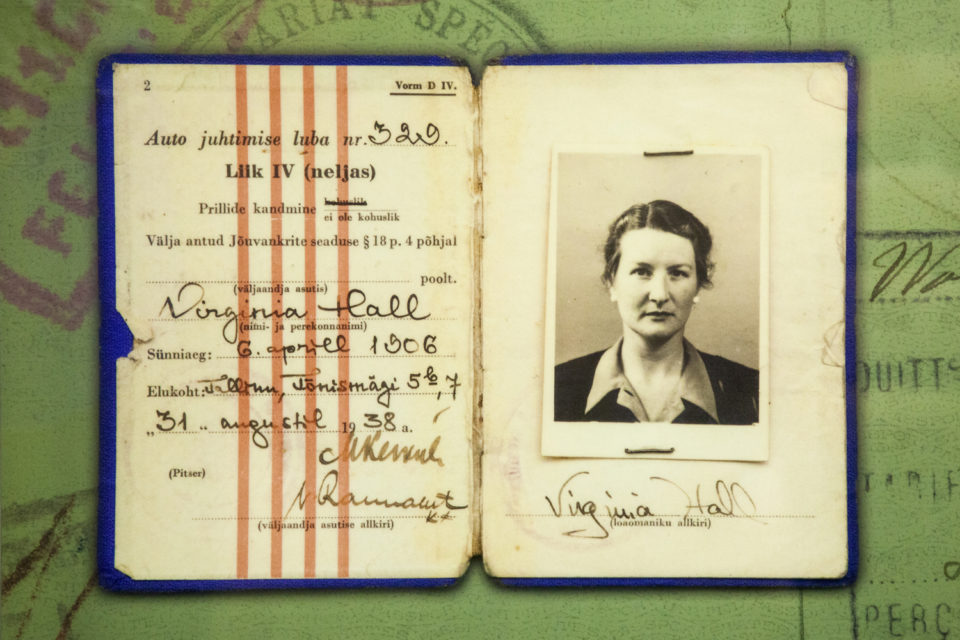 ARIAT SPÉC
2
Vorm D IV.
Auto juhtimise luba nr. 329.
Liik IV (neljas)
Prillide kandmine kohuslik
ei ole kohuslik
Välja antud Jõuvankrite seaduse § 18 p. 4 põhjal
poolt.
(väljaandja asutis)
Virginia Hall
(nimi- ja perekonnanimi)
Sünniaeg: 6. aprill 1906
Elukoht: Tallinn, Tõnismägi 5b, 7
„31" augustil 1938 a.
(Pitser)
(väljaandja asutise allkiri)
Virginia Hall
(loaomaniku allkiri)
QUITT
TARIF
PERÇ